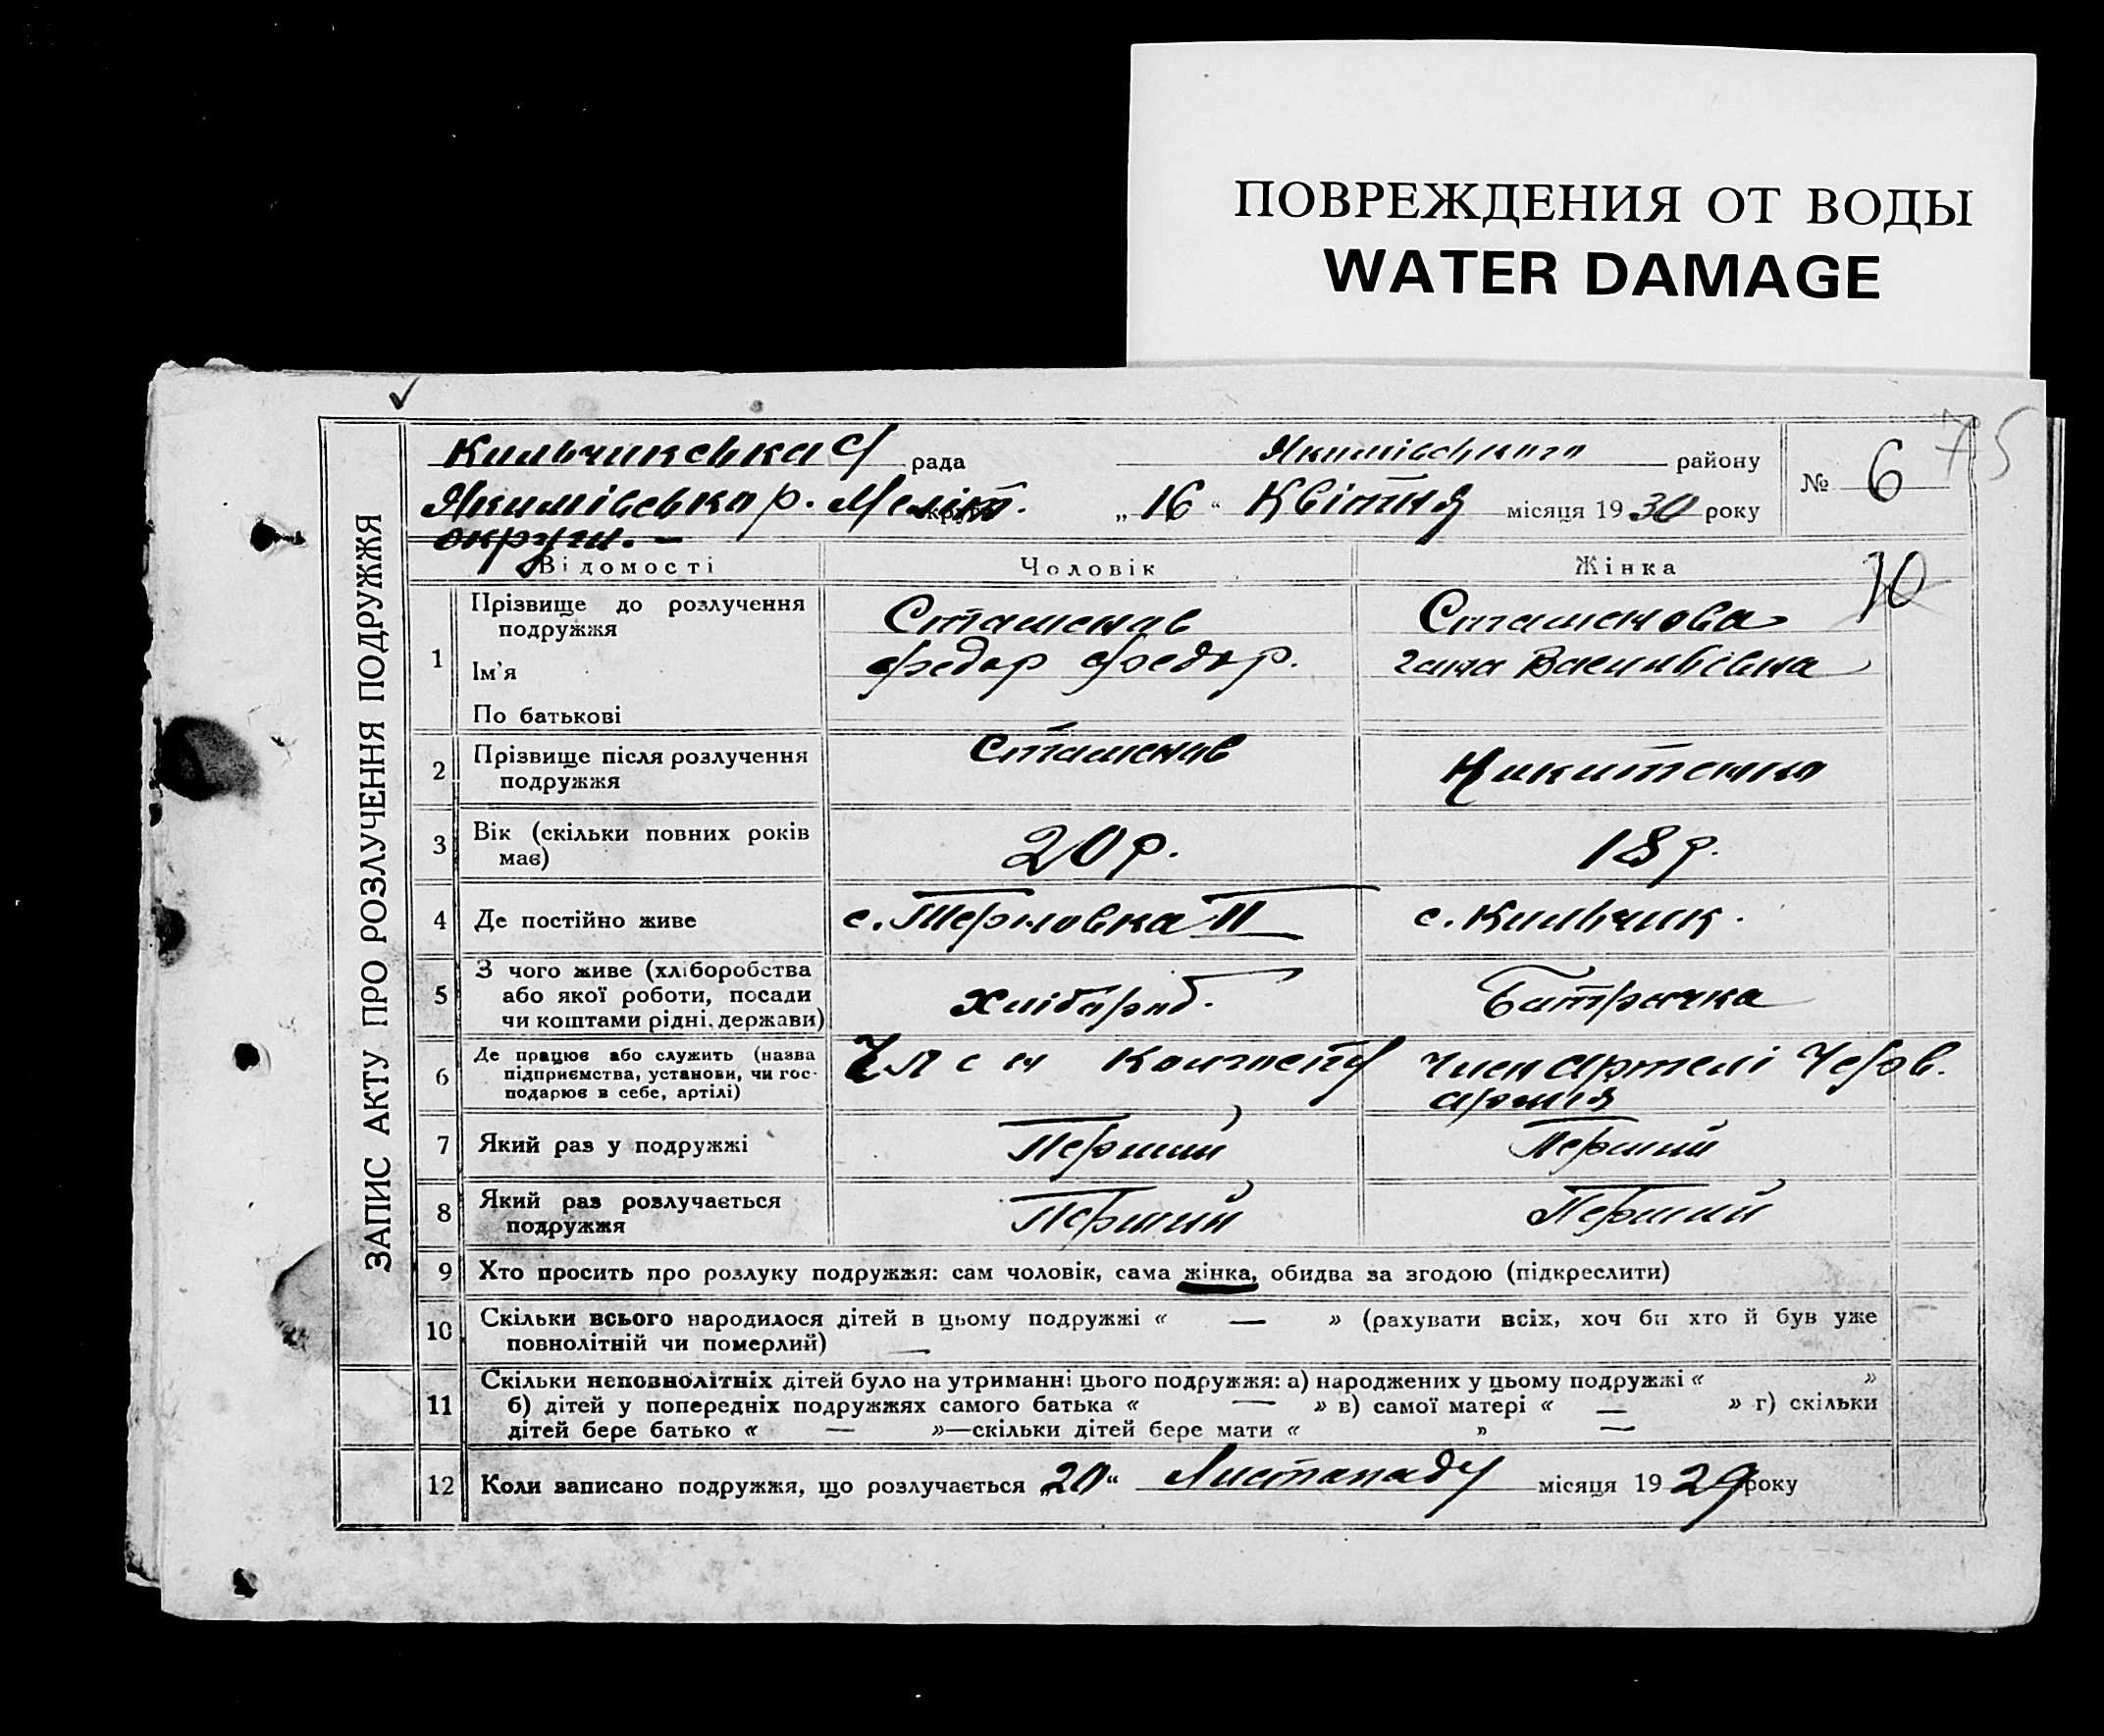 ПОВРЕЖДЕНИЯ ОТ ВОДЫ
WATER DAMAGE
75
ЗАПИС АКТУ ПРО РОЗЛУЧЕННЯ ПОДРУЖЖЯ
Кильчикська С/ рада Якимівського району № 6
Якимівська р. Меліт. „16“ Квітня місяця 1930 року
округи. –
Відомості Чоловік Жінка 10
1 Прізвище до розлучення подружжя Сташенов Сташенова
Ім'я Федор Федор. Ганна Васильівна
По батькові
2 Прізвище після розлучення Сташенов Никитенко
подружжя
3 Вік (скільки повних років 20 р. 18 р.
має)
4 Де постійно живе с. Терновка II с. Кильчик.
5 З чого живе (хліборобства Хлібороб. Батрачка
або якої роботи, посади
чи коштами рідні. держави)
6 Де працює або служить (назва Член Член Артелі Черв.
підприємства, установи, чи гос- армія
подарює в себе, артілі)
7 Який раз у подружжі Перший Перший
8 Який раз розлучається Перший Перший
подружжя
9 Хто просить про розлуку подружжя: сам чоловік, сама жінка, обидва за згодою (підкреслити)
10 Скільки всього народилося дітей в цьому подружжі « — » (рахувати всіх, хоч би хто й був уже
повнолітній чи померлий) —
11 Скільки неповнолітніх дітей було на утриманні цього подружжя: а) народжених у цьому подружжі « »
б) дітей у попередніх подружжях самого батька « — » в) самої матері « — » г) скільки
дітей бере батько « — »—скільки дітей бере мати « » —
12 Коли записано подружжя, що розлучається „20“ Листападу місяця 1929 року